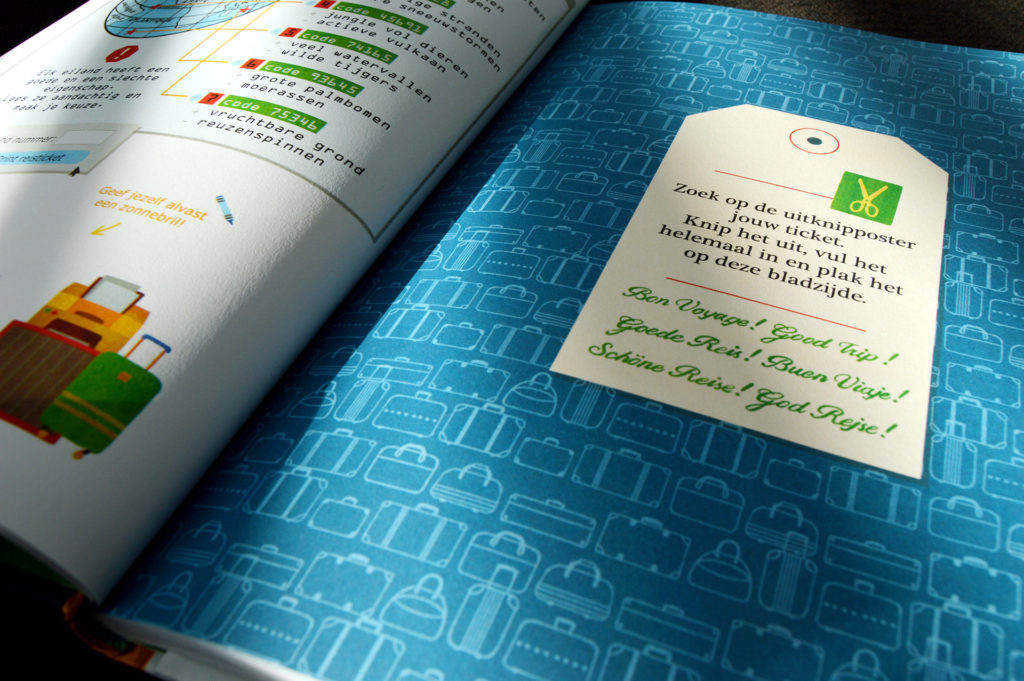 stranden
sneeuwstormen
4 code 45692
jungle vol dieren
actieve vulkaan
5 code 74165
veel watervallen
wilde tijgers
6 code 93645
grote palmbomen
moerassen
7 code 75346
vruchtbare grond
reuzenspinnen
Elk eiland heeft een
goede en een slechte
eigenschap.
Lees ze aandachtig en
maak je keuze.
nummer:
Print reisticket
Geef jezelf alvast
een zonnebril!
Zoek op de uitknipposter
jouw ticket.
Knip het uit, vul het
helemaal in en plak het
op deze bladzijde.
Bon Voyage! Good Trip!
Goede Reis! Buen Viaje!
Schöne Reise! God Rejse!